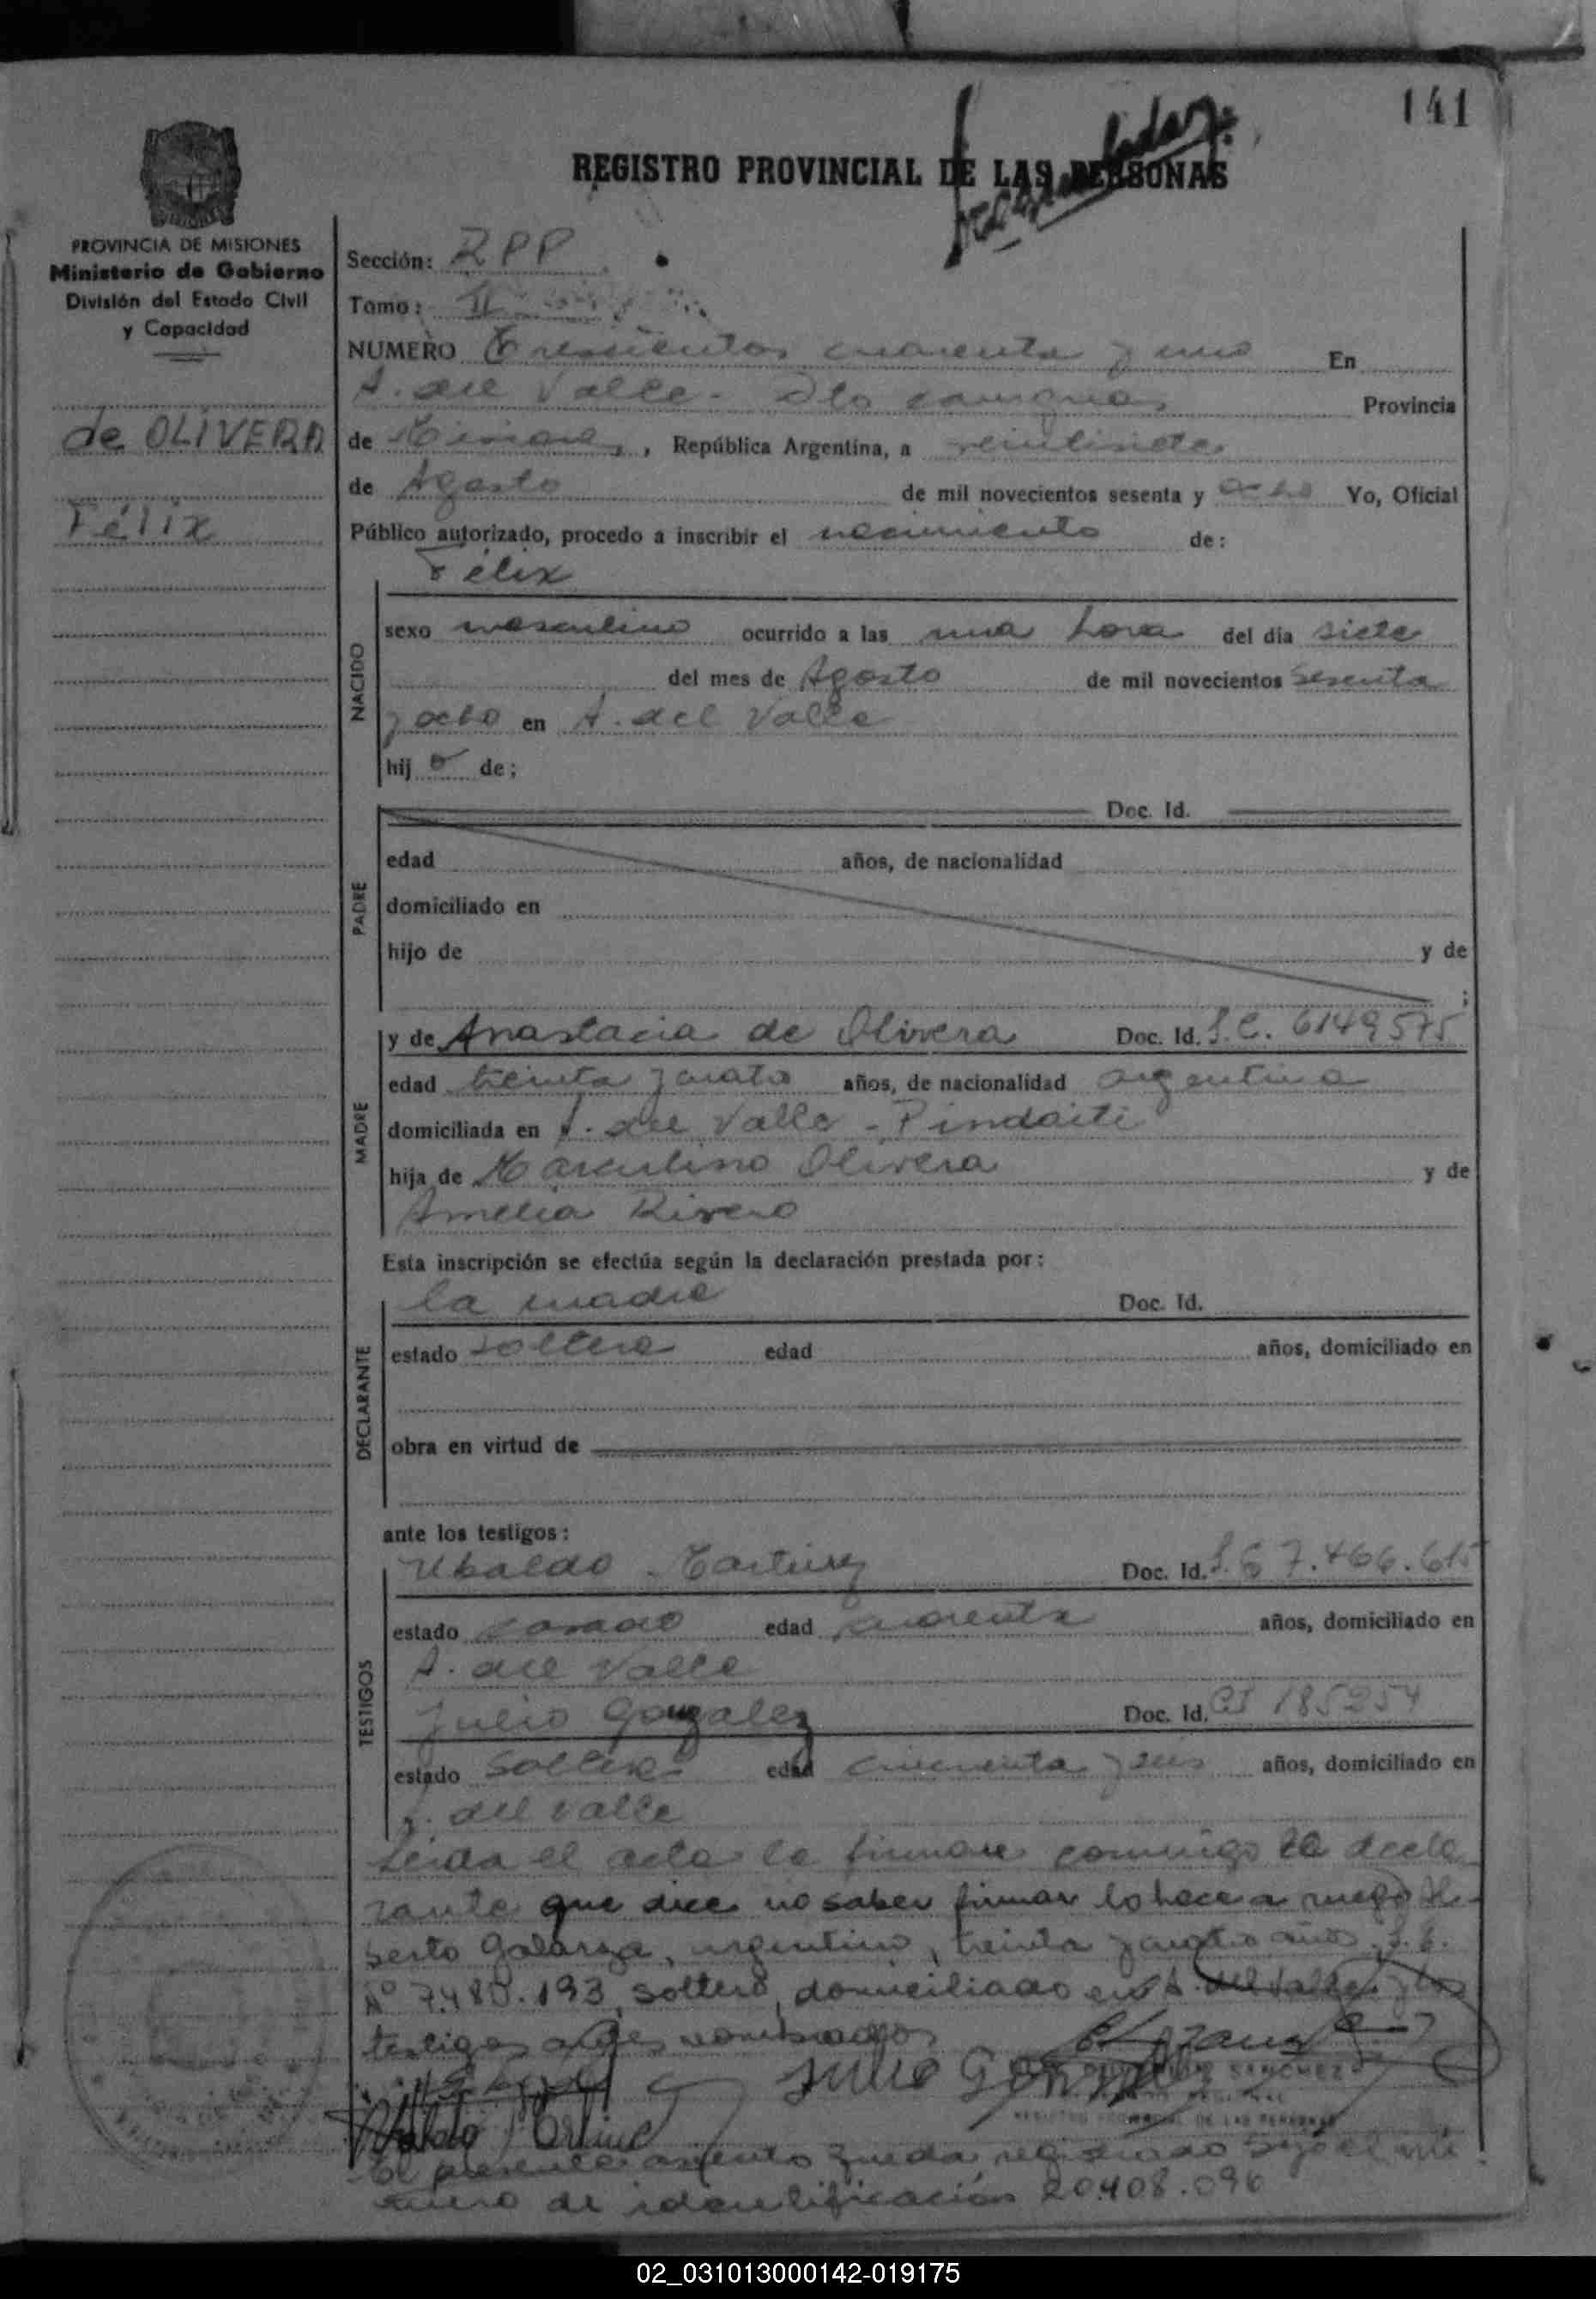 141
REGISTRO PROVINCIAL DE LAS PERSONAS
PROVINCIA DE MISIONES
Ministerio de Gobierno
División del Estado Civil
y Capacidad
de OLIVERA
Félix
Sección: RPP
Tomo: II
NUMERO Trescientos cuarenta y uno En
A. del Valle - Dto Cainguas Provincia
de Misiones, República Argentina, a veintisiete
de Agosto de mil novecientos sesenta y ocho Yo, Oficial
Público autorizado, procedo a inscribir el nacimiento de:
Félix
NACIDO
sexo masculino ocurrido a las una hora del día siete
del mes de Agosto de mil novecientos sesenta
y ocho en A. del Valle
hijo de;
PADRE
Doc. Id.
edad años, de nacionalidad
domiciliado en
hijo de y de
;
MADRE
y de Anastacia de Olivera Doc. Id. L.C. 6149575
edad treinta y cuatro años, de nacionalidad argentina
domiciliada en A. del Valle - Pindaiti
hija de Marculino Olivera y de
Amelia Rivero
Esta inscripción se efectúa según la declaración prestada por:
DECLARANTE
la madre Doc. Id.
estado soltera edad años, domiciliado en
obra en virtud de
ante los testigos:
TESTIGOS
Ubaldo Martinez Doc. Id. 7.466.615
estado casado edad cuarenta años, domiciliado en
A. del Valle
Julio Gonzalez Doc. Id. CI 185254
estado soltero edad cincuenta y seis años, domiciliado en
A. del Valle
Leida el acta la firman conmigo la decla
rante que dice no saber firmar lo hace a ruego
berto Galarza, argentino, treinta y cuatro años. L.E.
Nº 7.485.193, soltero, domiciliado en A. del Valle y los
testigos nombrados
Julio Gonzalez
SANCHEZ
REGISTRO PROVINCIAL DE LAS PERSONAS
Ubaldo Martinez
El presente asiento queda registrado bajo el nú
mero de identificación 20.408.096
02_031013000142-019175